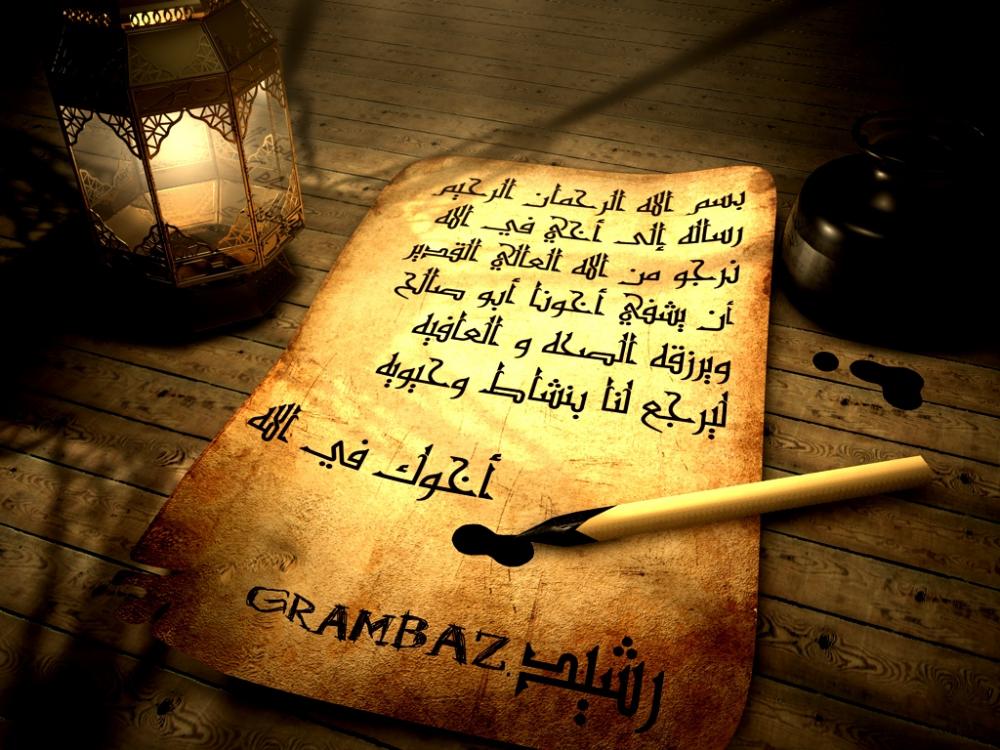 بسم الله الرحمان الرحيم
رساله إلى أخي في الله
نرجو من الله العالي القدير
أن يشفي أخونا أبو صالح
ويرزقه الصحه و العافيه
ليرجع لنا بنشاط وحيويه
أخوك في الله
رشيد GRAMBAZ